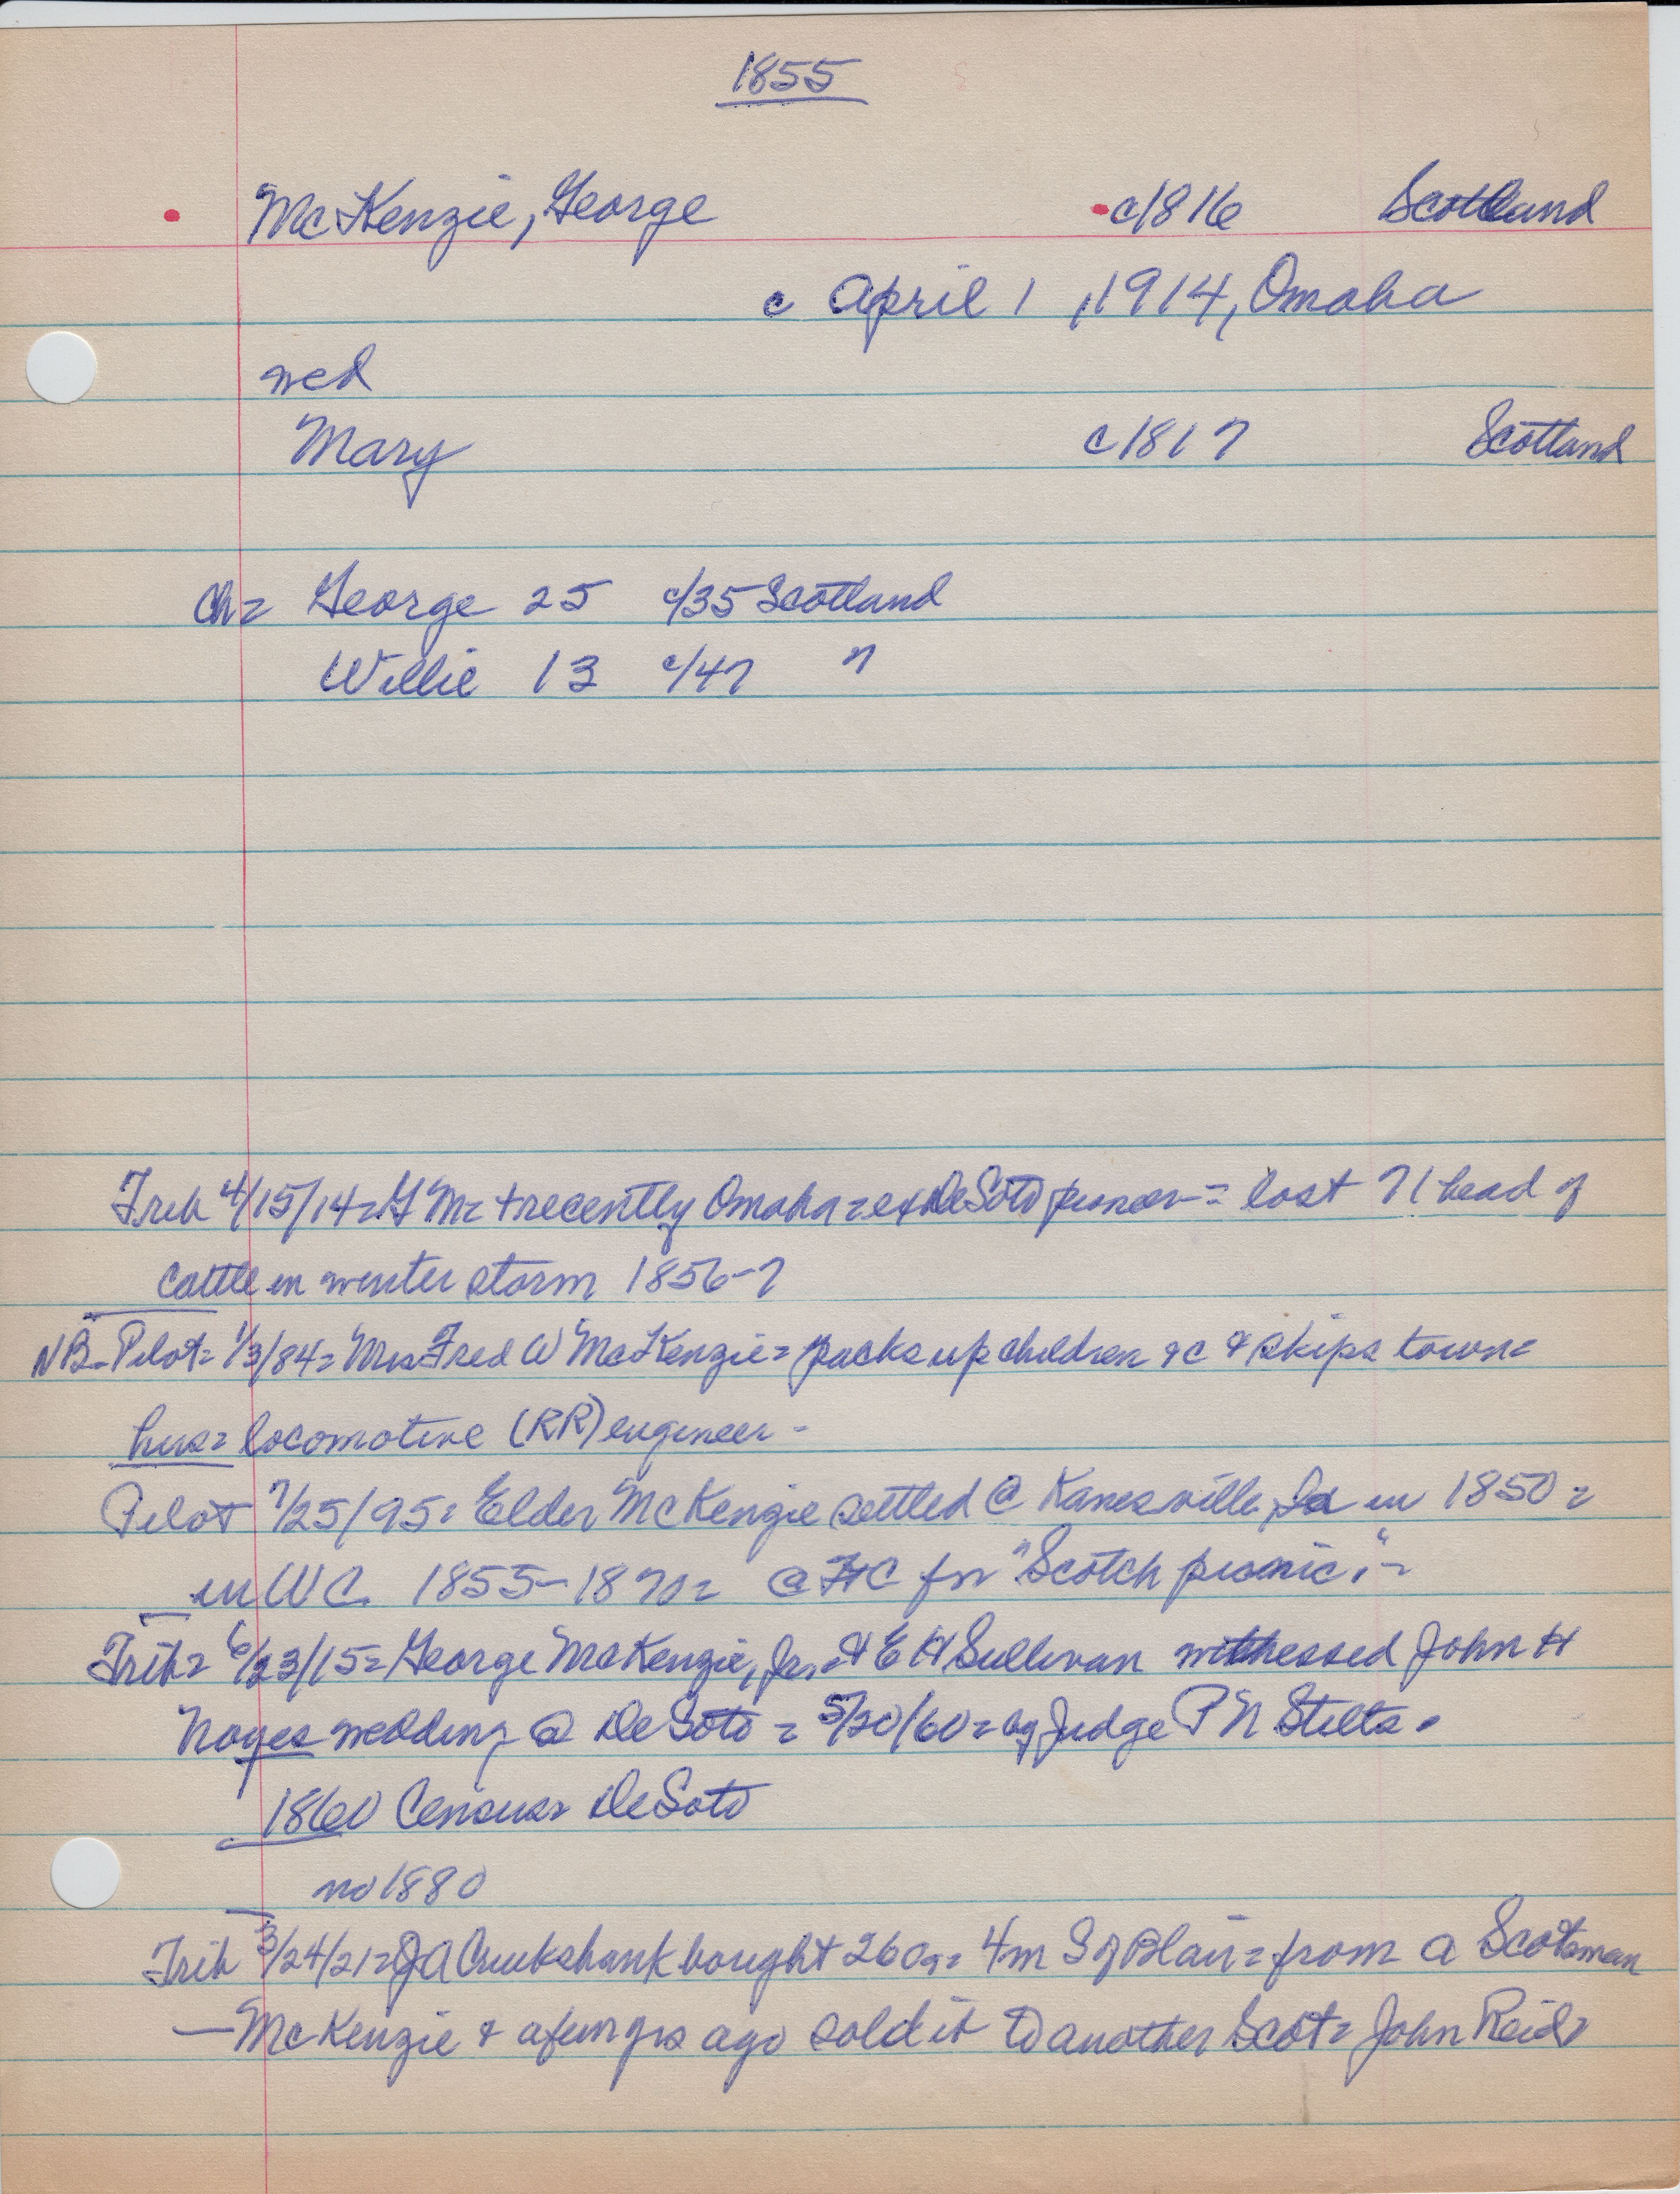 1855
McKenzie, George c/1816 Scotland
c April 1, 1914, Omaha
wed
Mary c1817 Scotland
Ch= George 25 c/35 Scotland
Willie 13 c/47 "
Trib 4/15/14= G Mc + recently Omaha = ex DeSoto pioneer = lost 71 head of
cattle in winter storm 1856-7
NB- Pilot= 1/3/84= Mrs Fred W McKenzie= packs up children &c & skips town=
hus= locomotive (RR) engineer -
Pilot 7/25/95= Elder McKenzie settled @ Kanesville, Ia in 1850=
in WC 1855-1870= @ FtC for "Scotch picnic," -
Trib= 6/23/15= George McKenzie, Jr. & E H Sullivan witnessed John H
Noyes wedding @ DeSoto = 5/20/60= by Judge P N Stilts.
1860 Census= DeSoto
no 1880
Trib 3/24/21= J A Cruikshank bought 260a= 4m S of Blair= from a Scotsman
— McKenzie & a few yrs ago sold it to another Scot= John Reid=